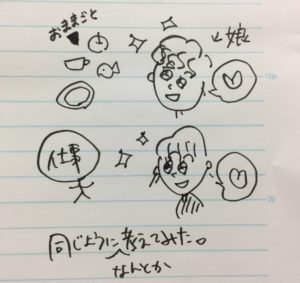 おままごと
←娘
仕事
同じように考えてみた。
なんとか